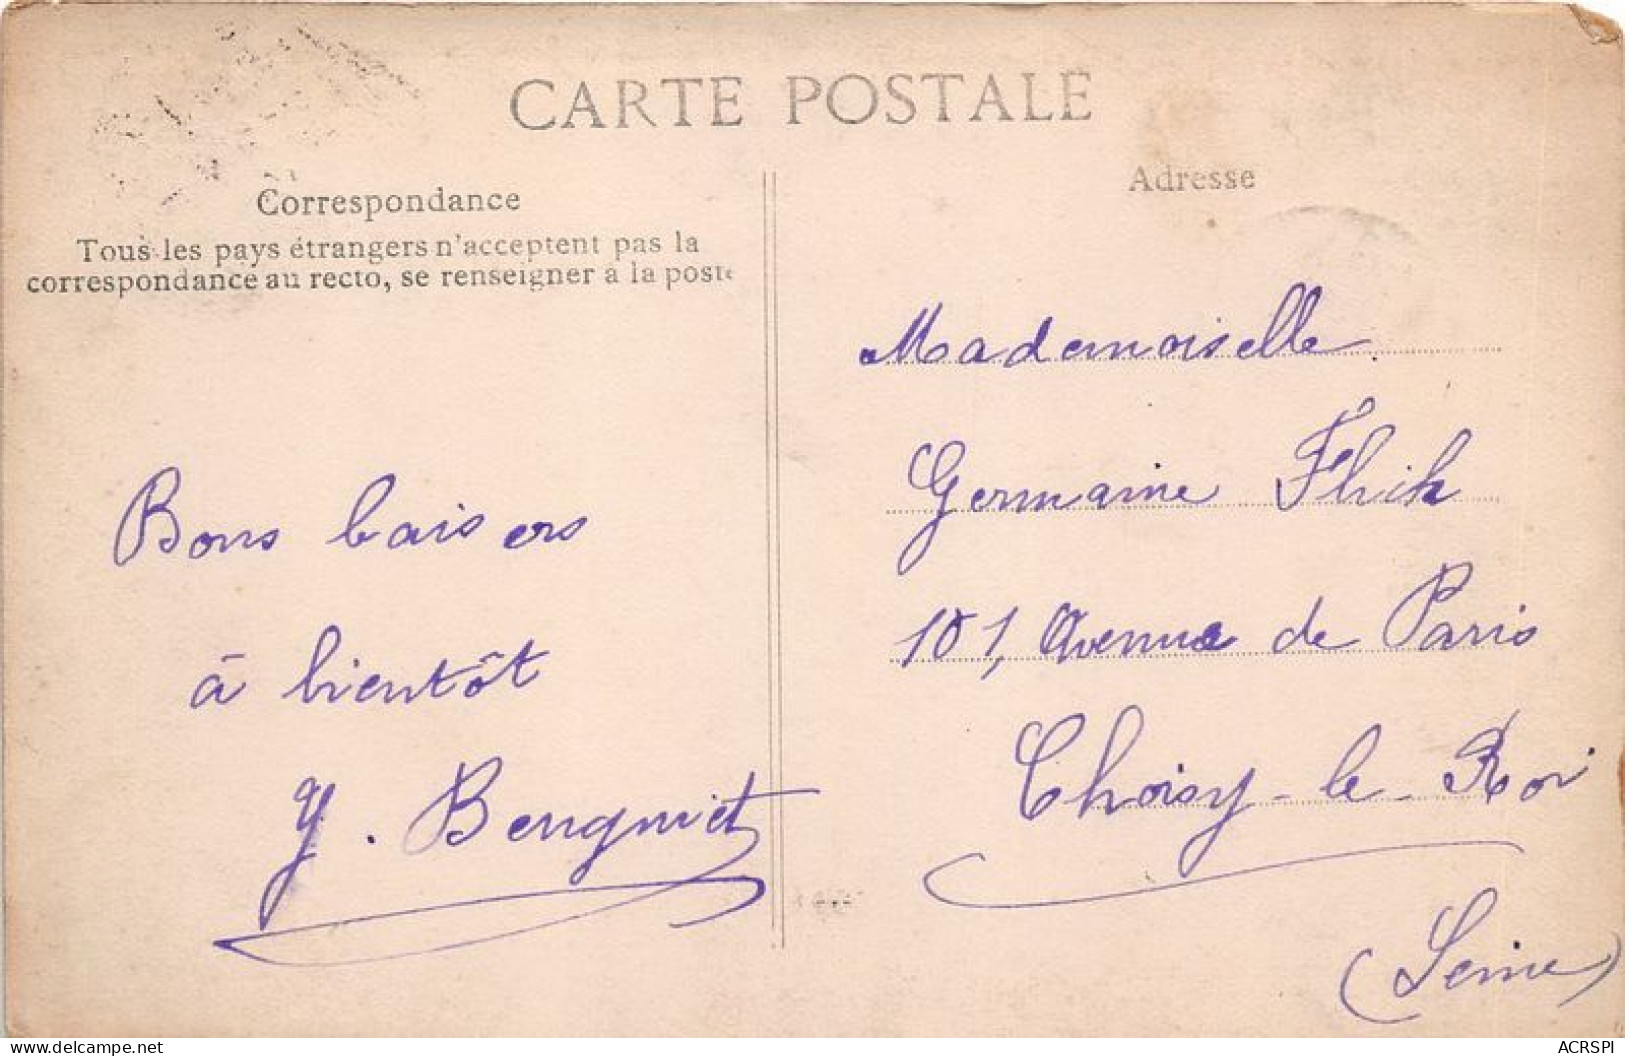 CARTE POSTALE
Correspondance
Tous les pays étrangers n'acceptent pas la
correspondance au recto, se renseigner à la poste
Bons baisers
à bientôt
Y. Benguiet
Adresse
Mademoiselle
Germaine
101, Avenue de Paris
Choisy-le-Roi
(Seine)
www.delcampe.net
ACRSPI